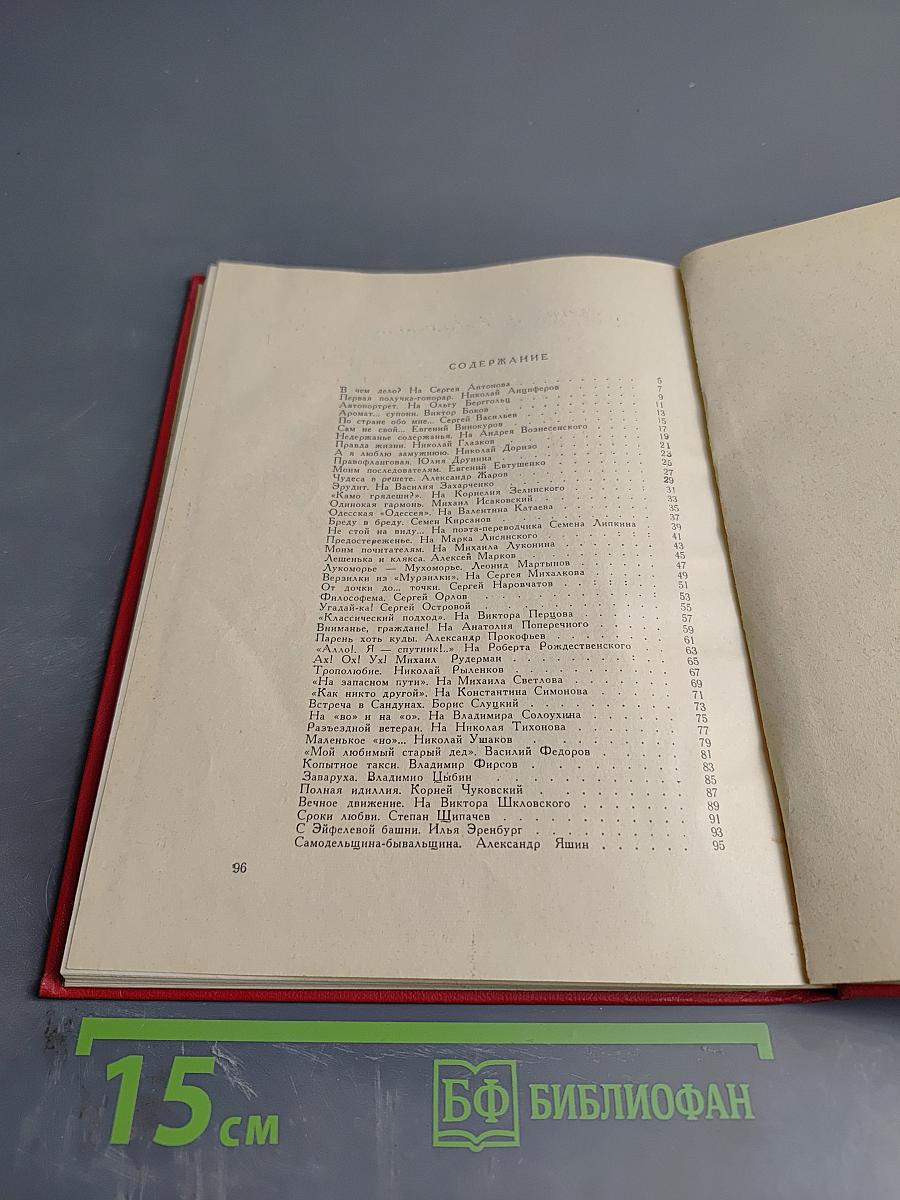 СОДЕРЖАНИЕ
В чем дело? На Сергея Антонова . . . . . . . . 5
Первая получка-гонорар. Николай Анциферов . . . . . . . . 7
Автопортрет. На Ольгу Берггольц . . . . . . . . 9
Аромат... супони. Виктор Боков . . . . . . . . 11
По стране обо мне... Сергей Васильев . . . . . . . . 13
Сам не свой... Евгений Винокуров . . . . . . . . 15
Недержанье содержанья. На Андрея Вознесенского . . . . . . . . 17
Правда жизни. Николай Глазков . . . . . . . . 19
А я люблю замужнюю. Николай Доризо . . . . . . . . 21
Правофланговая. Юлия Друнина . . . . . . . . 23
Моим последователям. Евгений Евтушенко . . . . . . . . 25
Чудеса в решете. Александр Жаров . . . . . . . . 27
Эрудит. На Василия Захарченко . . . . . . . . 29
«Камо грядеши?». На Корнелия Зелинского . . . . . . . . 31
Одинокая гармонь. Михаил Исаковский . . . . . . . . 33
Одесская «Одессея». На Валентина Катаева . . . . . . . . 35
Бреду в бреду. Семен Кирсанов . . . . . . . . 37
Не стой на виду... На поэта-переводчика Семена Липкина . . . . . . . . 39
Предостереженье. На Марка Лисянского . . . . . . . . 41
Моим почитателям. На Михаила Луконина . . . . . . . . 43
Лешенька и клякса. Алексей Марков . . . . . . . . 45
Лукоморье — Мухоморье. Леонид Мартынов . . . . . . . . 47
Верзилки из «Мурзилки». На Сергея Михалкова . . . . . . . . 49
От дочки до... точки. Сергей Наровчатов . . . . . . . . 51
Философема. Сергей Орлов . . . . . . . . 53
Угадай-ка! Сергей Островой . . . . . . . . 55
«Классический подход». На Виктора Перцова . . . . . . . . 57
Вниманье, граждане! На Анатолия Поперечного . . . . . . . . 59
Парень хоть куды. Александр Прокофьев . . . . . . . . 61
«Алло!. Я — спутник!..» На Роберта Рождественского . . . . . . . . 63
Ах! Ох! Ух! Михаил Рудерман . . . . . . . . 65
Трополюбие. Николай Рыленков . . . . . . . . 67
«На запасном пути». На Михаила Светлова . . . . . . . . 69
«Как никто другой». На Константина Симонова . . . . . . . . 71
Встреча в Сандунах. Борис Слуцкий . . . . . . . . 73
На «во» и на «о». На Владимира Солоухина . . . . . . . . 75
Разъездной ветеран. На Николая Тихонова . . . . . . . . 77
Маленькое «но»... Николай Ушаков . . . . . . . . 79
«Мой любимый старый дед». Василий Федоров . . . . . . . . 81
Копытное такси. Владимир Фирсов . . . . . . . . 83
Заваруха. Владимир Цыбин . . . . . . . . 85
Полная идиллия. Корней Чуковский . . . . . . . . 87
Вечное движение. На Виктора Шкловского . . . . . . . . 89
Сроки любви. Степан Щипачев . . . . . . . . 91
С Эйфелевой башни. Илья Эренбург . . . . . . . . 93
Самодельщина-бывальщина. Александр Яшин . . . . . . . . 95
96
15 см
БФ БИБЛИОФАН